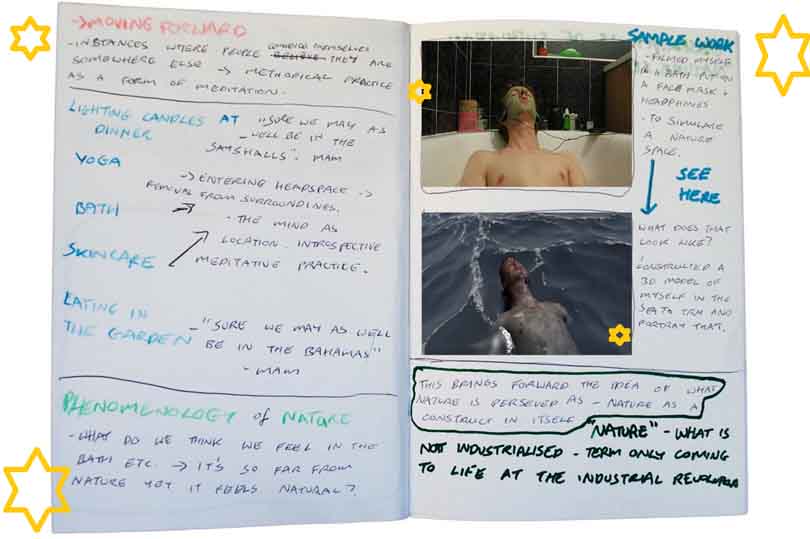 →MOVING FORWARD
- INSTANCES WHERE PEOPLE CONVINCE THEMSELVES BELIEVE THEY ARE
SOMEWHERE ELSE → METHODICAL PRACTICE
AS A FORM OF MEDITATION.
LIGHTING CANDLES AT DINNER
- "SURE WE MAY AS
WELL BE IN THE
". MAM
YOGA
→ ENTERING HEADSPACE →
REMOVAL FROM SURROUNDINGS.
BATH
- THE MIND AS
LOCATION. INTROSPECTIVE
MEDITATIVE PRACTICE.
SKINCARE
EATING IN
THE GARDEN
- "SURE WE MAY AS WELL
BE IN THE BAHAMAS"
- MAM
PHENOMENOLOGY of NATURE
- WHAT DO WE THINK WE FEEL IN THE
BATH ETC. → IT'S SO FAR FROM
NATURE YET IT FEELS NATURAL?
SAMPLE WORK
- FILMED MYSELF
IN A BATH PUT ON
A FACE MASK +
HEADPHONES
- TO SIMULATE
A NATURE
SPACE.
SEE
HERE
WHAT DOES THAT
LOOK LIKE?
I CONSTRUCTED A
3D MODEL OF
MYSELF IN THE
SEA TO TRY AND
PORTRAY THAT.
THIS BRINGS FORWARD THE IDEA OF WHAT
NATURE IS PERSEVED AS - NATURE AS A
CONSTRUCT IN ITSELF
"NATURE" - WHAT IS
NOT INDUSTRIALISED - TERM ONLY COMING
TO LIFE AT THE INDUSTRIAL